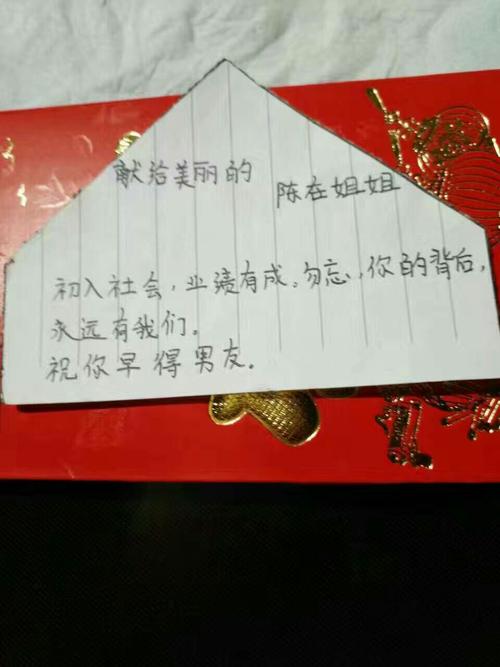 献给美丽的
陈在姐姐
初入社会，业绩有成。勿忘，你的背后，
永远有我们。
祝你早得男友。